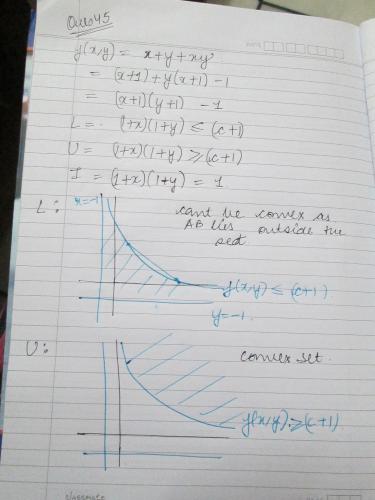 Ques 45
f(x,y) = x+y+xy
= (x+1)+y(x+1)-1
= (x+1)(y+1) -1
L = (1+x)(1+y) ≤ (c+1)
U = (1+x)(1+y) ≥ (c+1)
I = (1+x)(1+y) = 1
L :
x=-1
cant be convex as
AB lies outside the
set.
f(x,y) ≤ (c+1)
y=-1
U :
convex set.
f(x,y) ≥ (c+1)
classmate